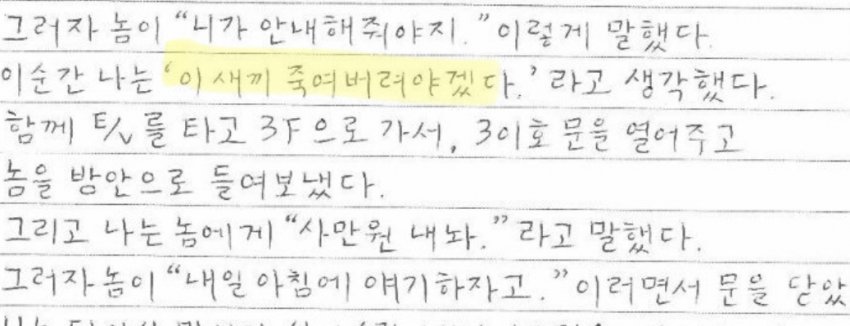 그러자 놈이 “니가 안내해줘야지.” 이렇게 말했다.
이순간 나는 ‘이 새끼 죽여버려야겠다.’ 라고 생각했다.
함께 E/V를 타고 3F으로 가서, 301호 문을 열어주고
놈을 방안으로 들여보냈다.
그리고 나는 놈에게 “사만원 내놔.” 라고 말했다.
그러자 놈이 “내일 아침에 얘기하자고.” 이러면서 문을 닫았